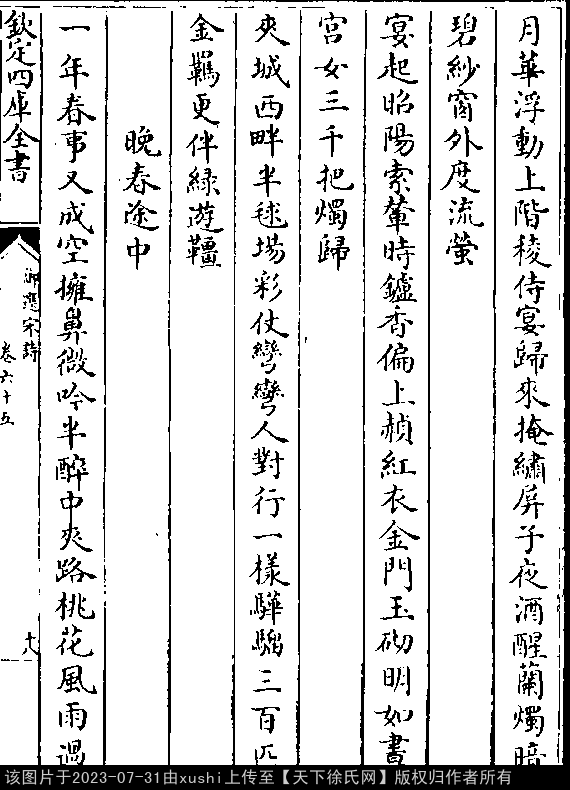 月華浮動上階稜侍宴歸來掩繡屏子夜酒醒蘭燭暗
碧紗窗外度流螢
宴起昭陽索輦時鑪香偏上赬紅衣金門玉砌明如晝
宮女三千把燭歸
夾城西畔半毬場彩仗彎彎人對行一樣驊騮三百匹
金羈更伴綠遊韁
晚春途中
一年春事又成空擁鼻微吟半醉中夾路桃花風雨過
欽定四庫全書
御選宋詩
卷六十五
十八
该图片于2023-07-31由xushi上传至【天下徐氏网】版权归作者所有